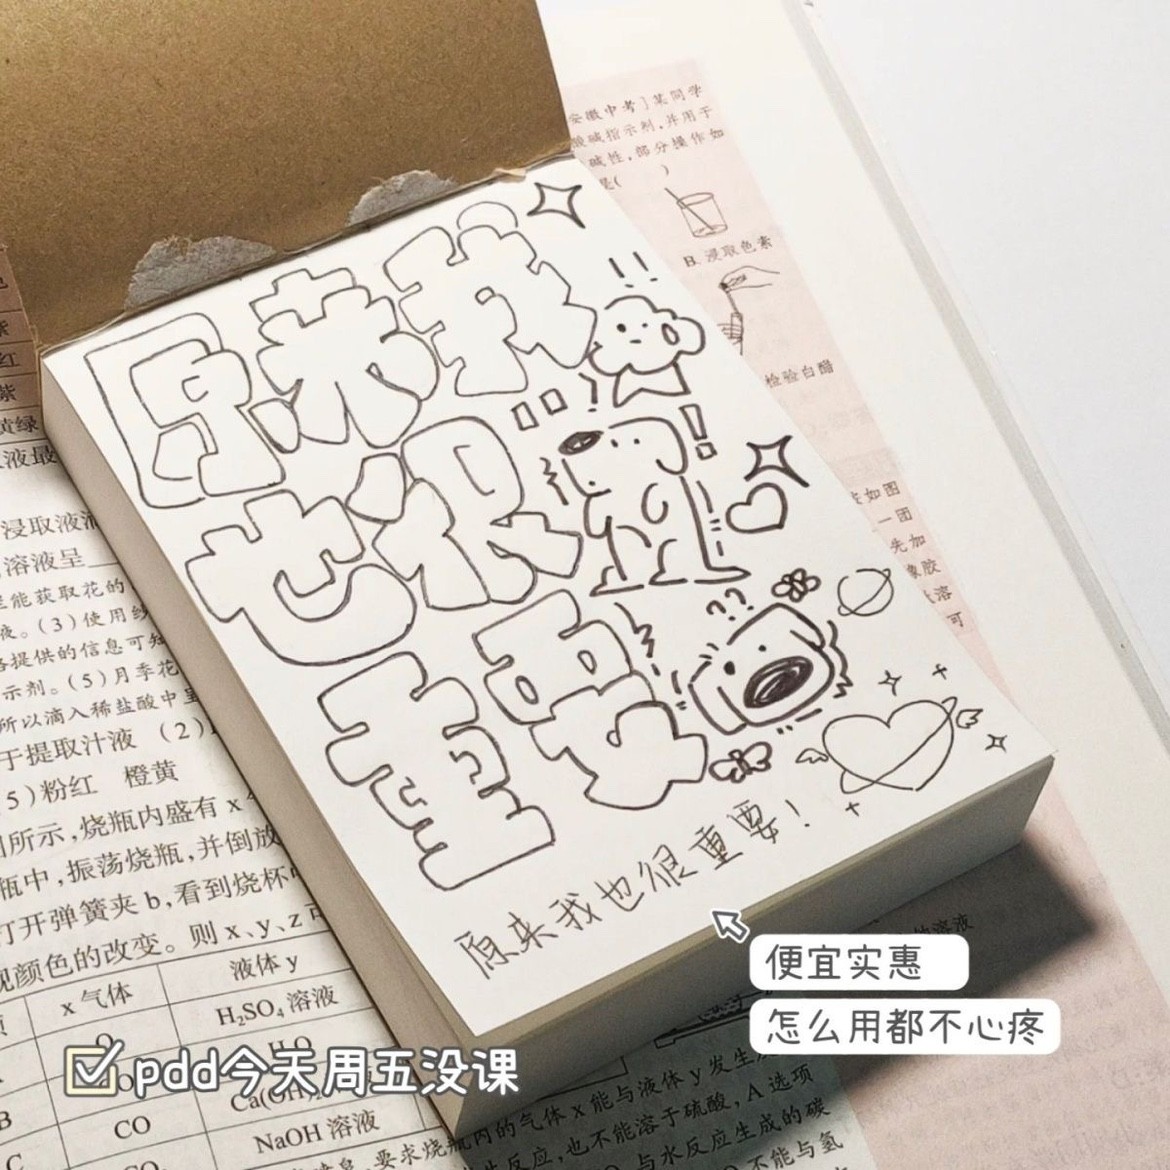 安徽中考]某同学
酸碱指示剂,并用于
碱性,部分操作如
是(　　)
B. 浸取色素
检验白醋
原来我
也很
重要
!!
??
原来我也很重要!
如图
一团
先加
橡胶
溶
可
红
紫
黄绿
液最
浸取液
溶液呈
能获取花的
液。(3)使用
提供的信息可知
示剂。(5)月季花
所以滴入稀盐酸中
于提取汁液 (2)
5)粉红 橙黄
所示,烧瓶内盛有 x
瓶中,振荡烧瓶,并倒放
打开弹簧夹 b,看到烧杯
观颜色的改变。则 x、y、z
x 气体
液体 y
H₂SO₄ 溶液
B
CO
NaOH 溶液
C
便宜实惠
怎么用都不心疼
pdd今天周五没课
的气体 x 能与液体 y 发生
反应,也不能溶于硫酸,A 选项
与水反应生成的碳
不能与氢